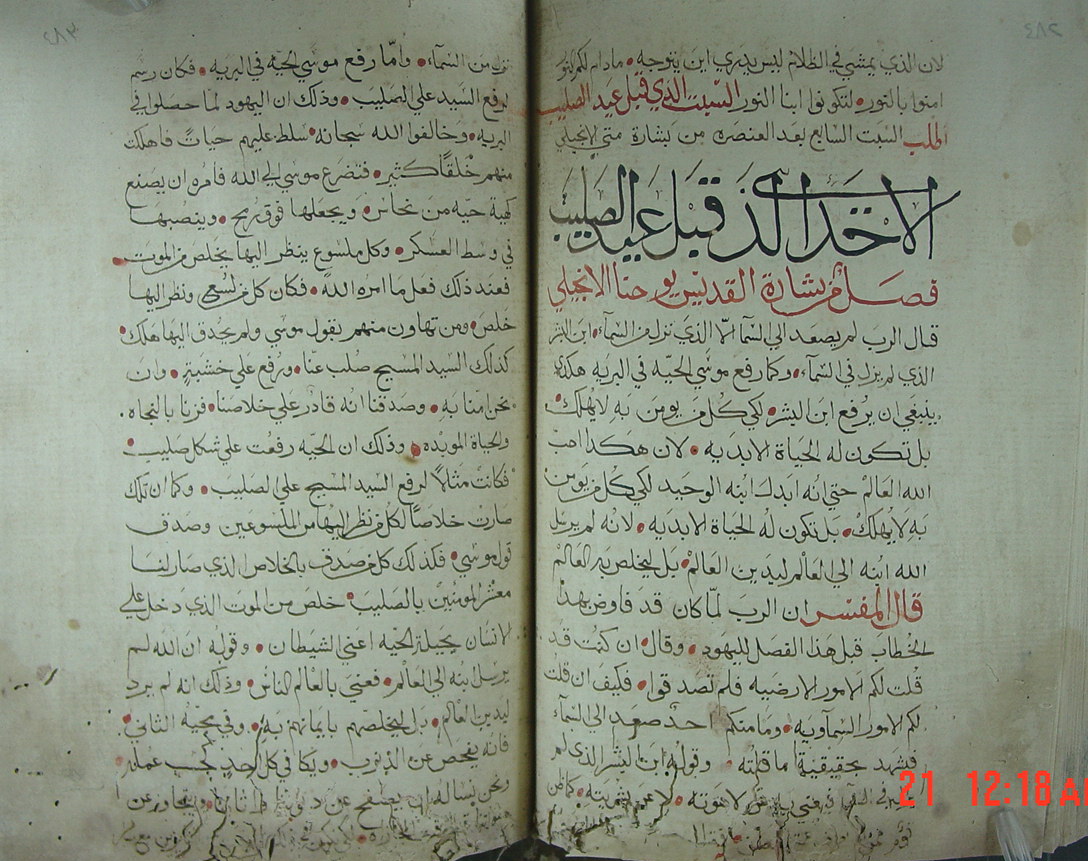 ٤٨٢
لان الذي يمشي في الظلام ليس يدري اين يتوجه • مادام لكم النور
امنوا بالنور • لتكونوا ابنا النور السبت الذي قبل عيد الصليب
اطلب السبت السابع بعد العنصره من بشارة متي الانجيلي
الاحد الذي قبل عيد الصليب
فصل من بشارة القديس يوحنا الانجيلي
قال الرب لم يصعد الي السمآ الا الذي نزل من السمآء • ابن البشر
الذي لم يزل في السمآء • وكما رفع موسي الحيه في البريه هكذي
ينبغي ان يرفع ابن البشر • لكي كل من يومن به لا يهلك •
بل تكون له الحياة الابديه • لان هكذا احب
الله العالم حتي انه ابدل ابنه الوحيد لكي كل من يومن
به لا يهلك • بل تكون له الحياة الابديه • لانه لم يرسل
الله ابنه الي العالم ليدين العالم • بل ليخلص به العالم
قال المفسر ان الرب لما كان قد فاوض بهذا
الخطاب قبل هذا الفصل لليهود • وقال • ان كنت قد
قلت لكم الامور الارضيه فلم تصدقوا • فكيف ان قلت
لكم الامور السمآويه • وما منكم احد صعد الي السمآء
فيشهد بحقيقية ما قلته • وقوله ابن البشر الذي لم
21 12:18 A
من السمآء • وامّا رفع موسي الحيه في البريه • فكان رسم
لرفع السيد علي الصليب • وذلك ان اليهود لما حصلوا في
البريه • وخالفوا الله سبحانه • سلط عليهم حيات فاهلكت
منهم خلقًا كثير • فتضرع موسي الي الله فامره ان يصنع
كهية حيه من نحاس • ويجعلها فوق رمح • وينصبها
في وسط العسكر • وكل ملسوع ينظر اليها يخلص من الموت •
فعند ذلك فعل ما امره الله • فكان كل من لسع ونظر اليها
خلص • ومن تهاون منهم بقول موسي ولم يحدق اليها هلك •
كذلك السيد المسيح صلب عنّا • ورفع علي خشبة • وان
نحن امنا به • وصدقنا انه قادر علي خلاصنا • فزنا بالنجاه •
والحياة الموبده • وذلك ان الحيه رفعت علي شكل صليب •
فكانت مثالًا لرفع السيد المسيح علي الصليب • وكما ان تلك
صارت خلاصًا لكل من نظر اليها من الملسوعين وصدق
قول موسي • فكذلك كل من صدق بالخلاص الذي صار لنا
معشر المومنين بالصليب • خلص من الموت الذي دخل علي
الانسان بحيلة الحيه اعني الشيطان • وقوله ان الله لم
يرسل ابنه الي العالم • فعني بالعالم الناس • وذلك انه لم يرد
ليدين العالم • بل ليخلصهم بايمانهم به • وفي مجيه الثاني •
فانه يفحص عن الذنوب • ويكافي كل احد بحسب عمله •
ونحن نساله ان